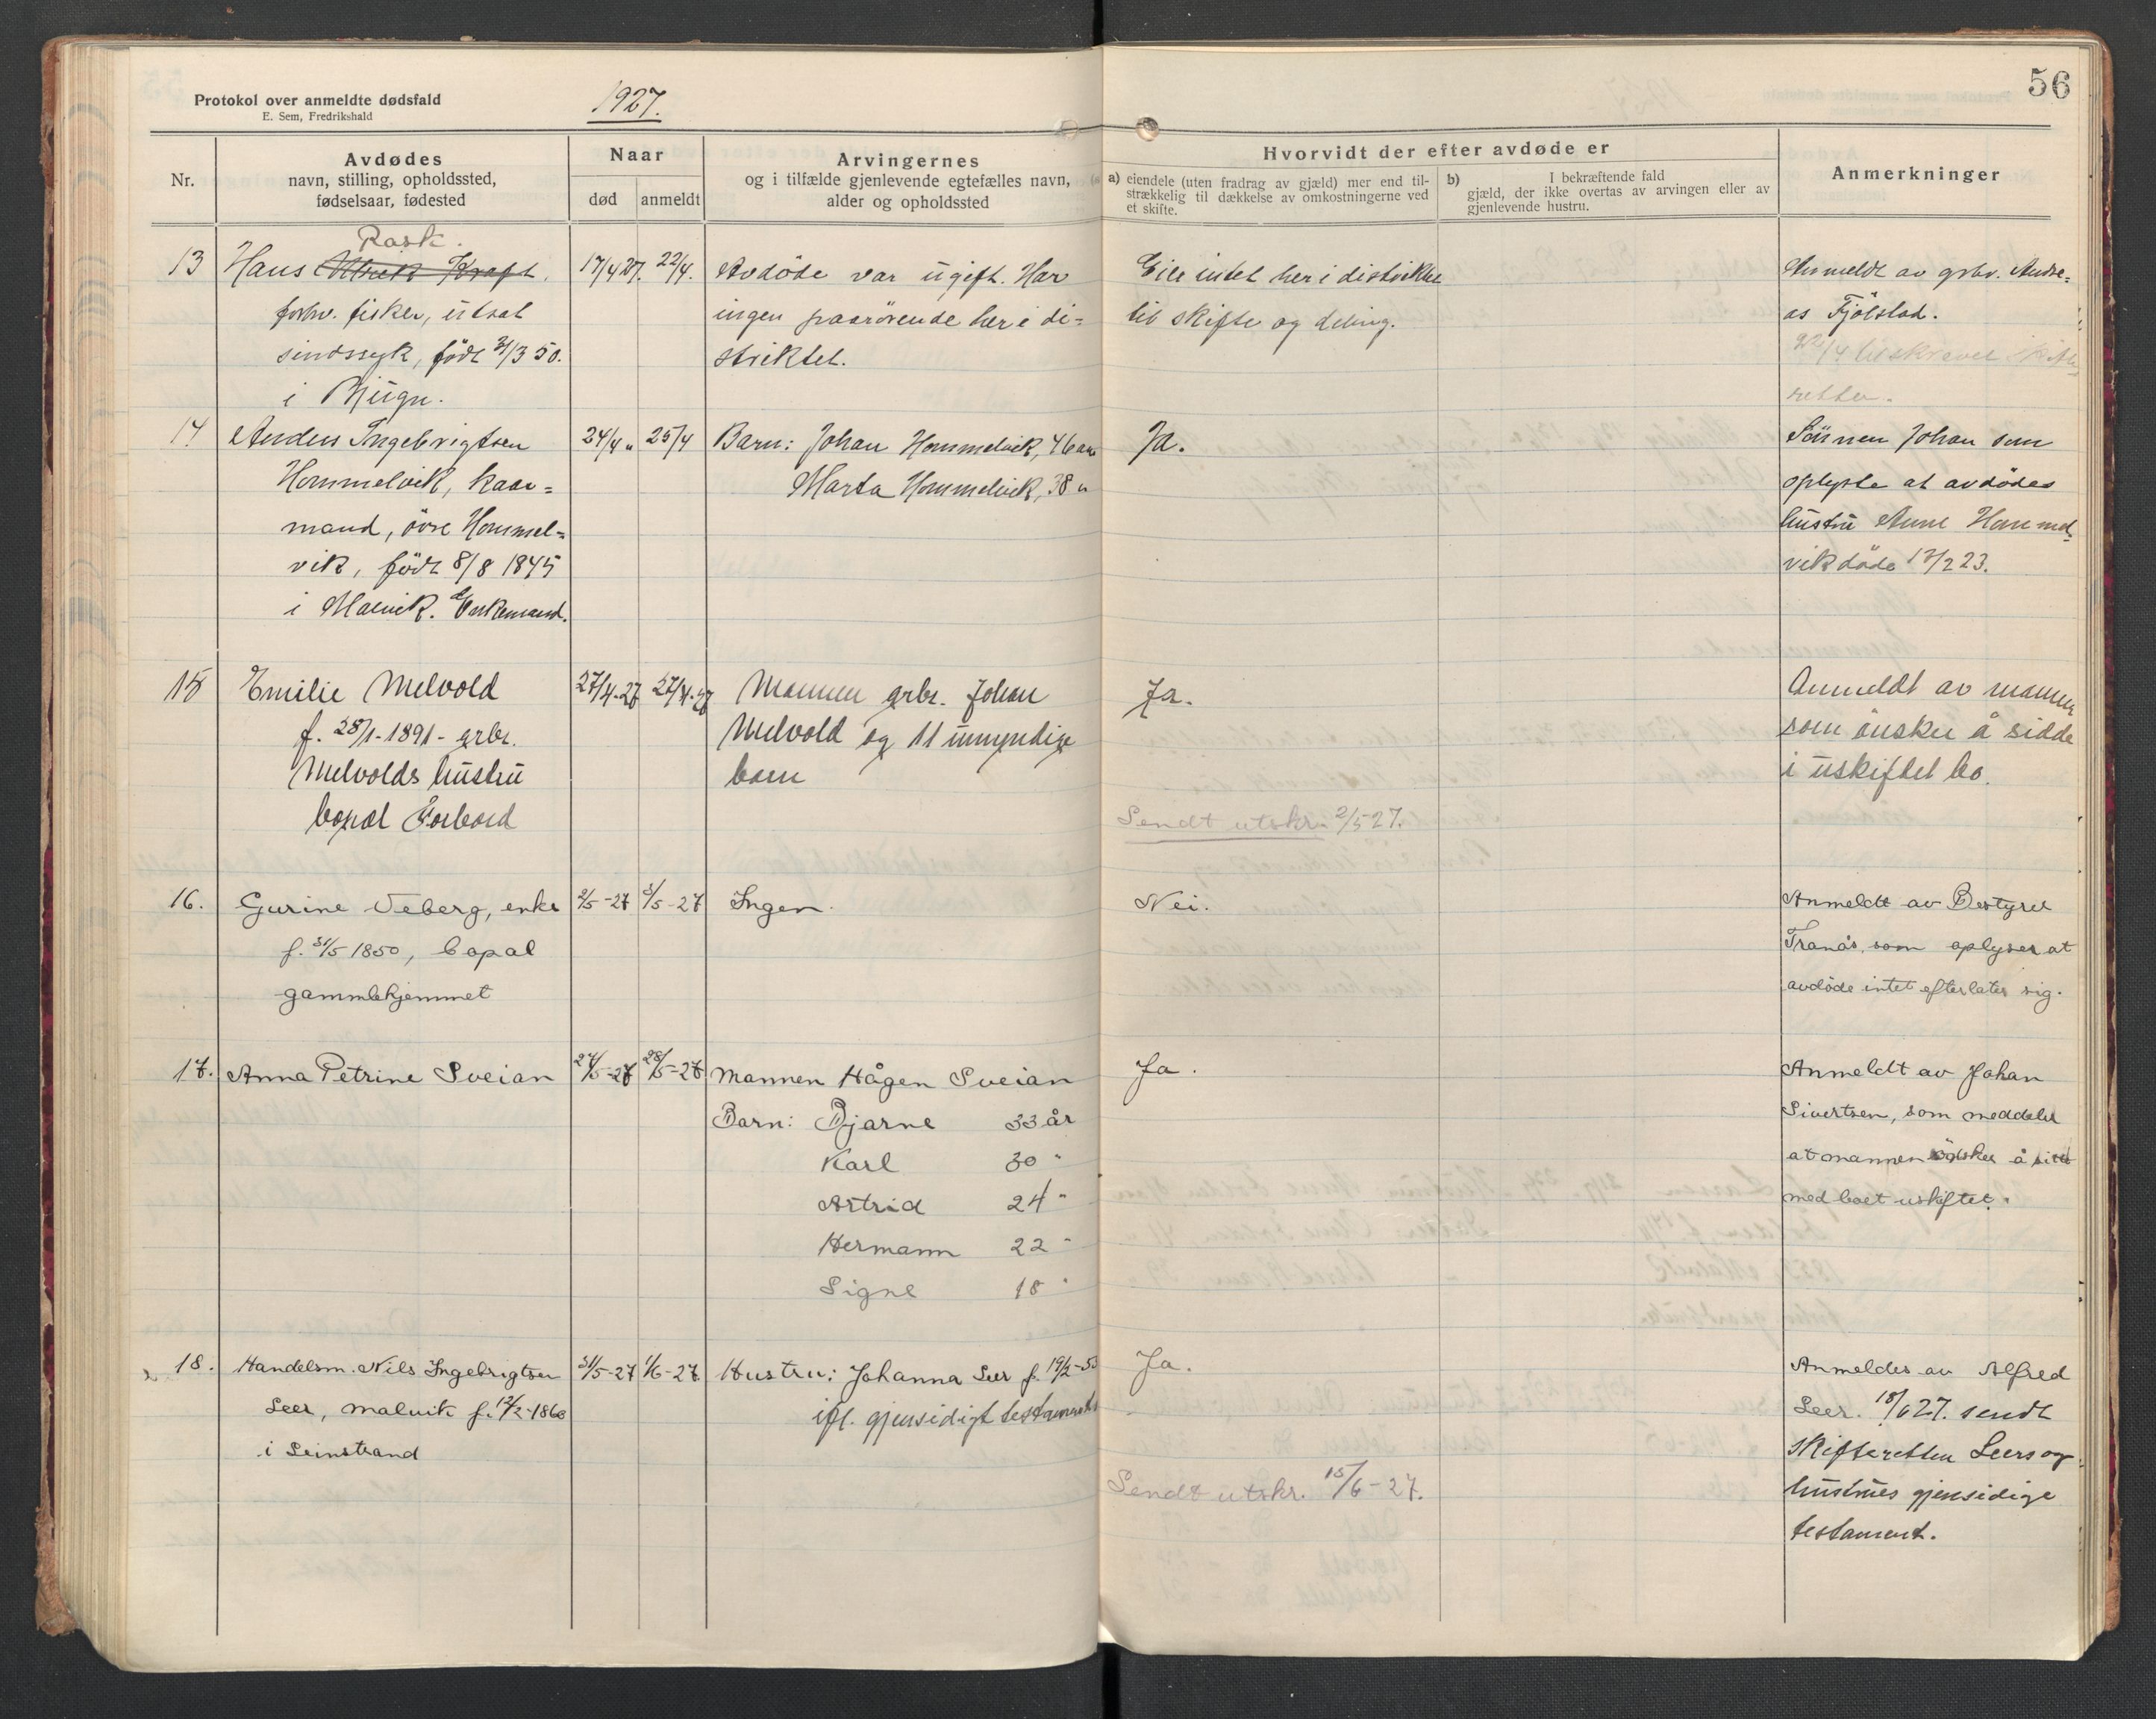 Protokol over anmeldte dødsfald
E. Sem, Fredrikshald
1927.
56
Nr.
Avdødes
navn, stilling, opholdssted,
fødselsaar, fødested
Naar
død
anmeldt
Arvingernes
og i tilfælde gjenlevende egtefælles navn,
alder og opholdssted
Hvorvidt der efter avdøde er
a) eiendele (uten fradrag av gjæld) mer end til-
strækkelig til dækkelse av omkostningerne ved
et skifte.
b) I bekræftende fald
gjæld, der ikke overtas av arvingen eller av
gjenlevende hustru.
Anmerkninger
Rask.
13 Hans Ulrik Kraft. 17/4 27. 22/4. Avdöde var ugift. Har Eier intet her i distriktet Anmeldt av grbr. Andre-
forhv. fisker, utsat ingen paarörende her i di- til skifte og deling. as Fjölstad.
sindssyk, födt 31/3 50. striktet. 22/4 tilskrevet skifte-
i Bjugn. retten.
14 Anders Ingebrigtsen 24/4 " 25/4 Barn: Johan Hommelvik, 46 aar Ja. Sönnen Johan som
Hommelvik, kaar- Marta Hommelvik, 38 " oplyste at avdödes
mand, övre Hommel- hustru Anne Hommel-
vik, födt 8/8 1845 vik döde 17/2 23.
i Malvik. Enkemand.
15 Emilie Melvold 27/4-27 27/4-27 Mannen grbr. Johan Ja. Anmeldt av mannen
f. 28/1-1891 - grbr. Melvold og 11 umyndige som önsker å sidde
Melvolds hustru barn i uskiftet bo.
bopæl Forbord Sendt utskr. 2/5 27.
16. Gurine Veberg, enke 2/5-27 3/5-27 Ingen. Nei. Anmeldt av Bestyrer
f. 31/5 1850, bopæl Tranås, som oplyser at
gammlehjemmet avdöde intet efterlater sig.
17. Anna Petrine Sveian 27/5-27 28/5-27 Mannen Hågen Sveian Ja. Anmeldt av Johan
Barn: Bjarne 33 år Sivertsen, som meddeler
Karl 30 " at mannen önsker å sitte
Astrid 24 " med boet uskiftet.
Hermann 22 "
Signe 18 "
18. Handelsm. Nils Ingebrigtsen 31/5-27 1/6-27. Hustru: Johanna Leer f. 19/2-53 Ja. Anmeldes av Alfred
Leer, Malvik f. 12/2-1860 ifl. gjensidigt testamente Leer. 18/6 27. sendt
i Leinstrand skifteretten Leers og
Sendt utskr. 15/6-27. hustrues gjensidige
testament.